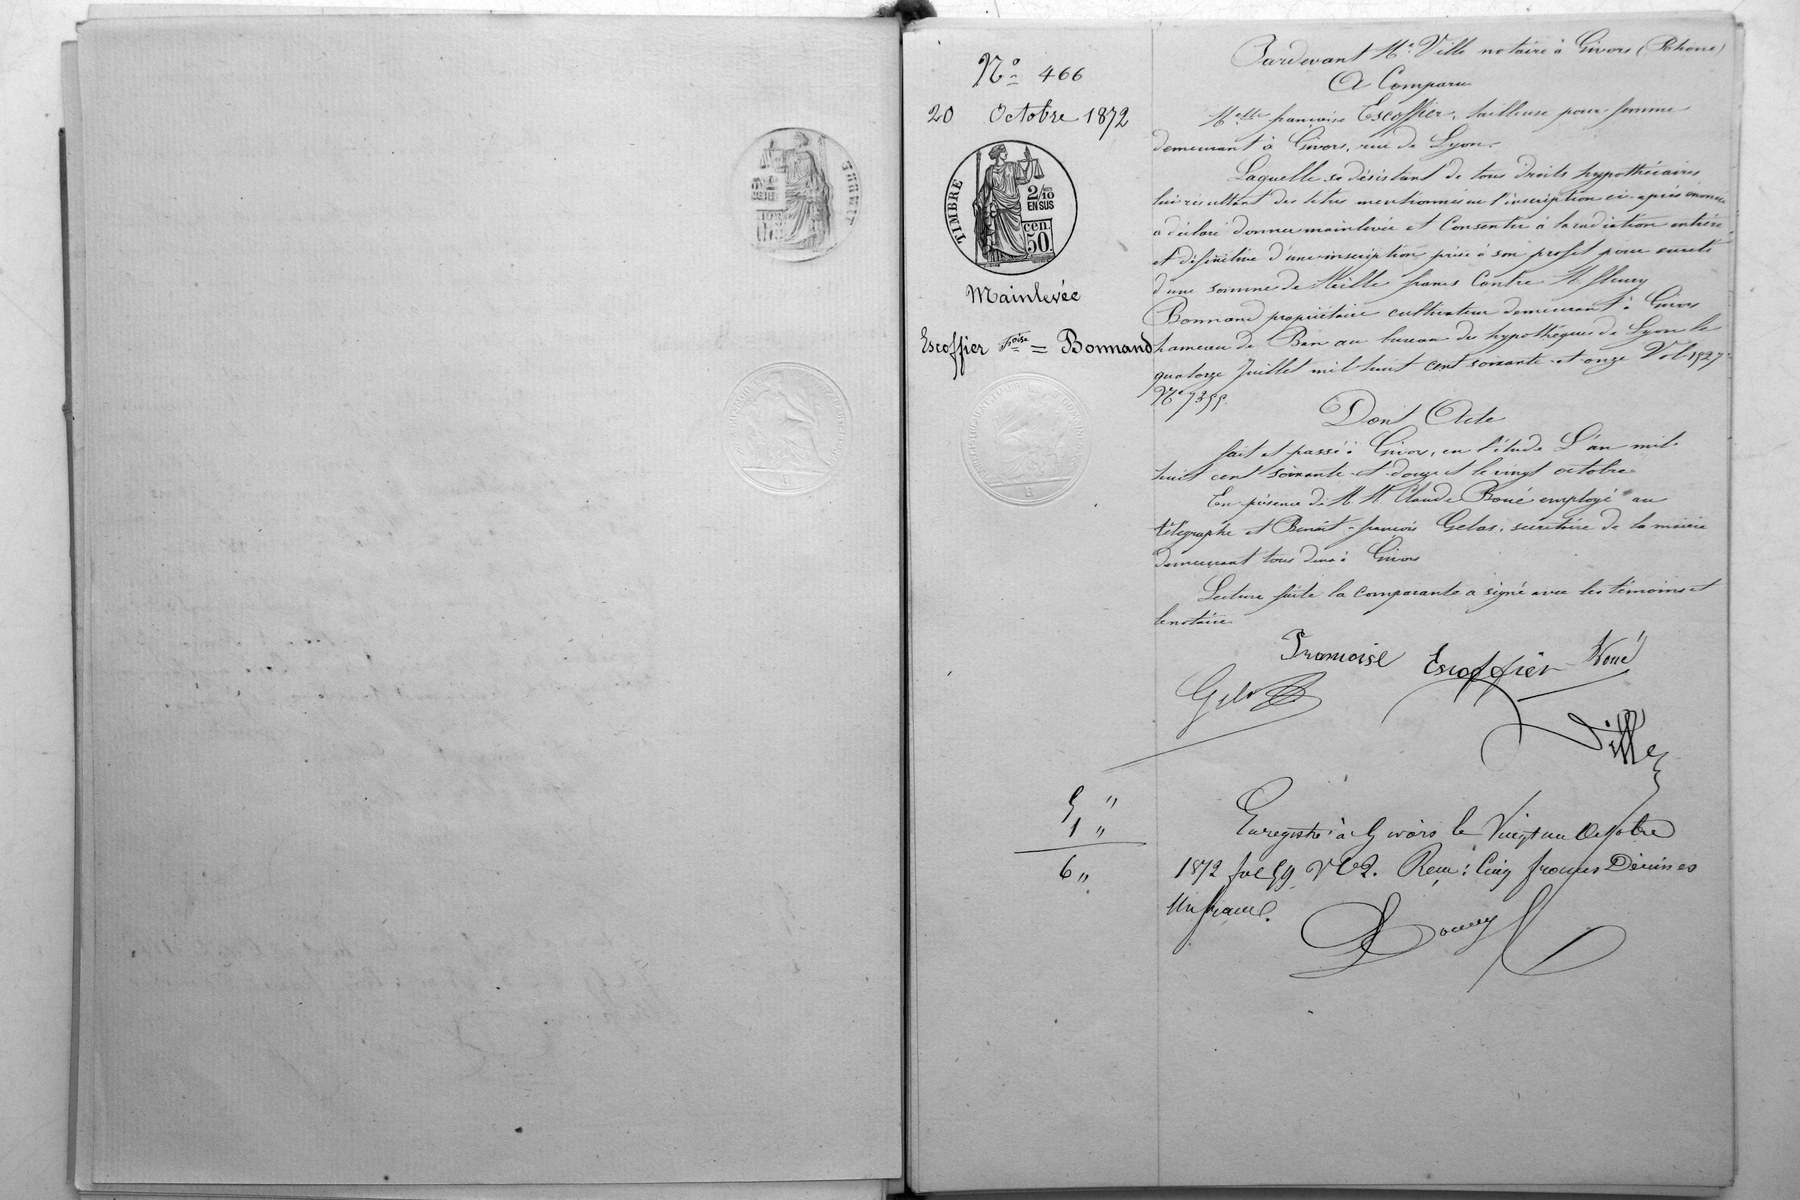 N° 466
20 Octobre 1872
TIMBRE
2/10
EN SUS
50 cen.
Mainlevée
Escoffier Foise = Bonnand
Pardevant Me Ville notaire à Givors (Rhône)
A Comparu
Melle françoise Escoffier, tailleuse pour femme
demeurant à Givors, rue de Lyon.
Laquelle se désistant de tous droits hypothécaires
lui résultant des titres mentionnés en l'inscription ci-après énoncée
a déclaré donner mainlevée et Consentir à la radiation entière
et définitive d'une inscription prise à son profit pour sureté
d'une somme de Meille francs Contre M. fleury
Bonnand propriétaire cultivateur demeurant à Givors
hameau de Ban au bureau des hypothèques de Lyon le
quatorze Juillet mil huit cent soixante et onze Vol. 1927
N° 7355.
Dont Acte
fait et passé à Givors, en l'étude L'an mil
huit cent soixante et douze et le vingt octobre
En présence de M. M. Claude Boué employé au
télégraphe et Benoît-françois Gelas, secrétaire de la mairie
demeurant tous deux à Givors
Lecture faite la comparante a signé avec les témoins et
le notaire.
Francoise Escoffier Boué
Gelas
Ville
5 "
1 "
6 "
Enregistré à Givors le Vingt un Octobre
1872 fol 59 Vo C 2. Reçu : Cinq francs Décimes
Un franc.